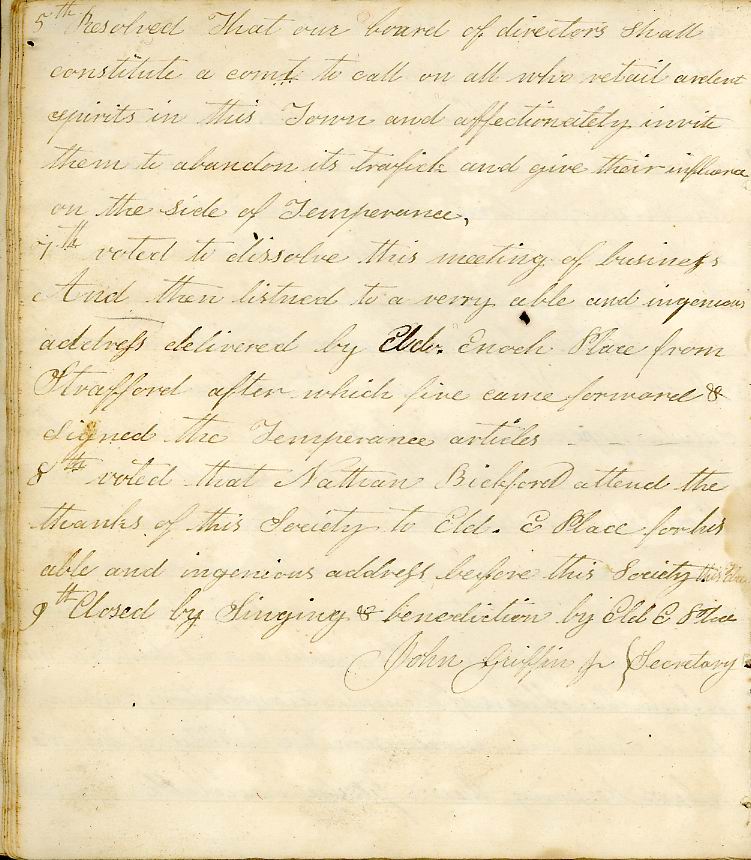 5th Resolved That our board of directors shall
constitute a comt. to call on all who retail ardent
spirits in this Town and affectionately invite
them to abandon its trafick and give their influence
on the side of Temperance,
7th voted to dissolve this meeting of business
And then listned to a verry able and ingenious
address delivered by Eld. Enoch Place from
Strafford after which five came forward &
signed the Temperance articles
8th voted that Nathan Bickford attend the
thanks of this Society to Eld. E Place for his
able and ingenious address before this Society this
9th Closed by Singing & benediction by Eld E Place
John Griffin Jr { Secretary